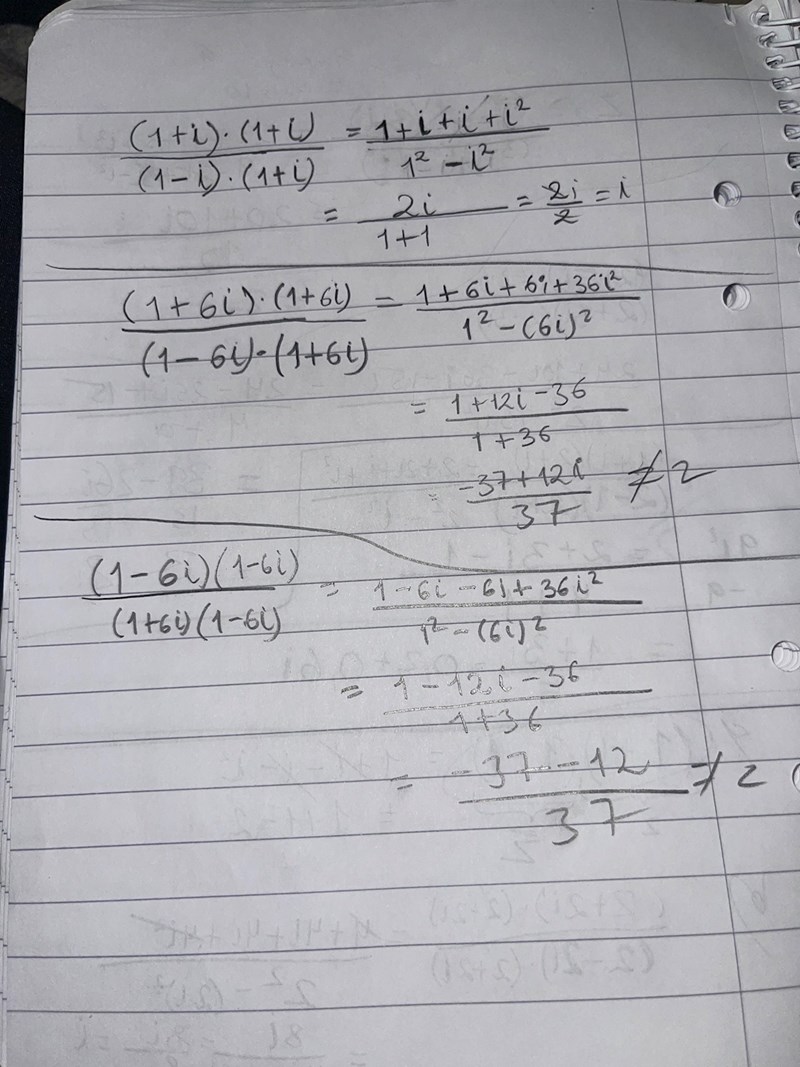 (1+i)·(1+i) / (1-i)·(1+i) = 1+i+i+i² / 1²-i²
= 2i / 1+1 = 2i / 2 = i
(1+6i)·(1+6i) / (1-6i)·(1+6i) = 1+6i+6i+36i² / 1²-(6i)²
= 1+12i-36 / 1+36
= -37+12i / 37 ≠ 2
(1-6i)(1-6i) / (1+6i)(1-6i) = 1-6i-6i+36i² / 1²-(6i)²
= 1-12i-36 / 1+36
= -37-12 / 37 ≠ 2